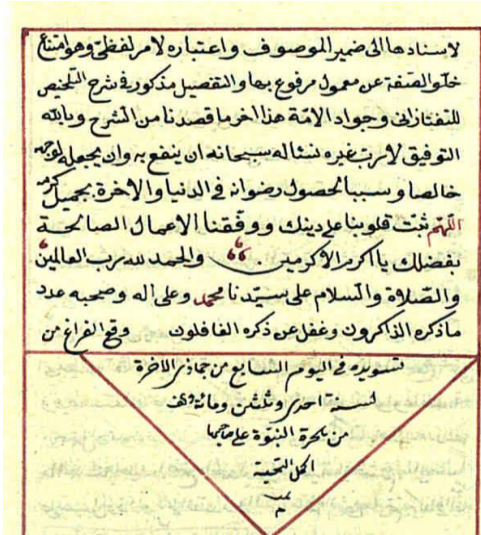 لاسنادها الى ضمير الموصوف واعتباره لامر لفظى وهو امتناع
خلو الصفة عن معمول مرفوع بها والتفصيل مذكور فى شرح التلخيص
للتفتازانى وجواد الامّة هذا اخر ما قصدنا من الشرح وبالله
التوفيق لا رب غيره نسئاله سبحانه ان ينفع به وان يجعله لوجهه
خالصا وسببا لحصول رضوانه فى الدنيا والاخرة بجميل كرمه
اللهم ثبت قلوبنا على دينك ووفقنا الاعمال الصالحة
بفضلك يا اكرم الاكرمين والحمد لله رب العالمين
والصلاة والسلام على سيدنا محمد وعلى اله وصحبه عدد
ما ذكره الذاكرون وغفل عن ذكره الغافلون وقع الفراغ من
تسويده فى اليوم السابع من جماذى الاخرة
لسنة احدى وثلثين ومائة والف
من هجرة النبوة على صاحبها
اكمل التحية
تمت
م